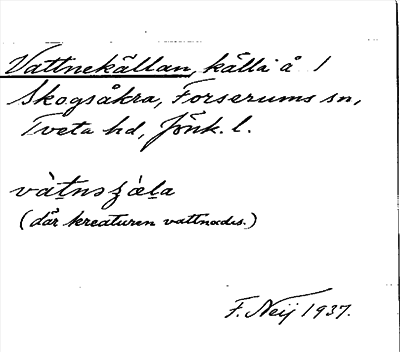 Vattnekällan, källa å 1
Skogsåkra, Forserums sn,
Tveta hd, Jönk. l.
(där kreaturen vattnades.)
F. Neij 1937.